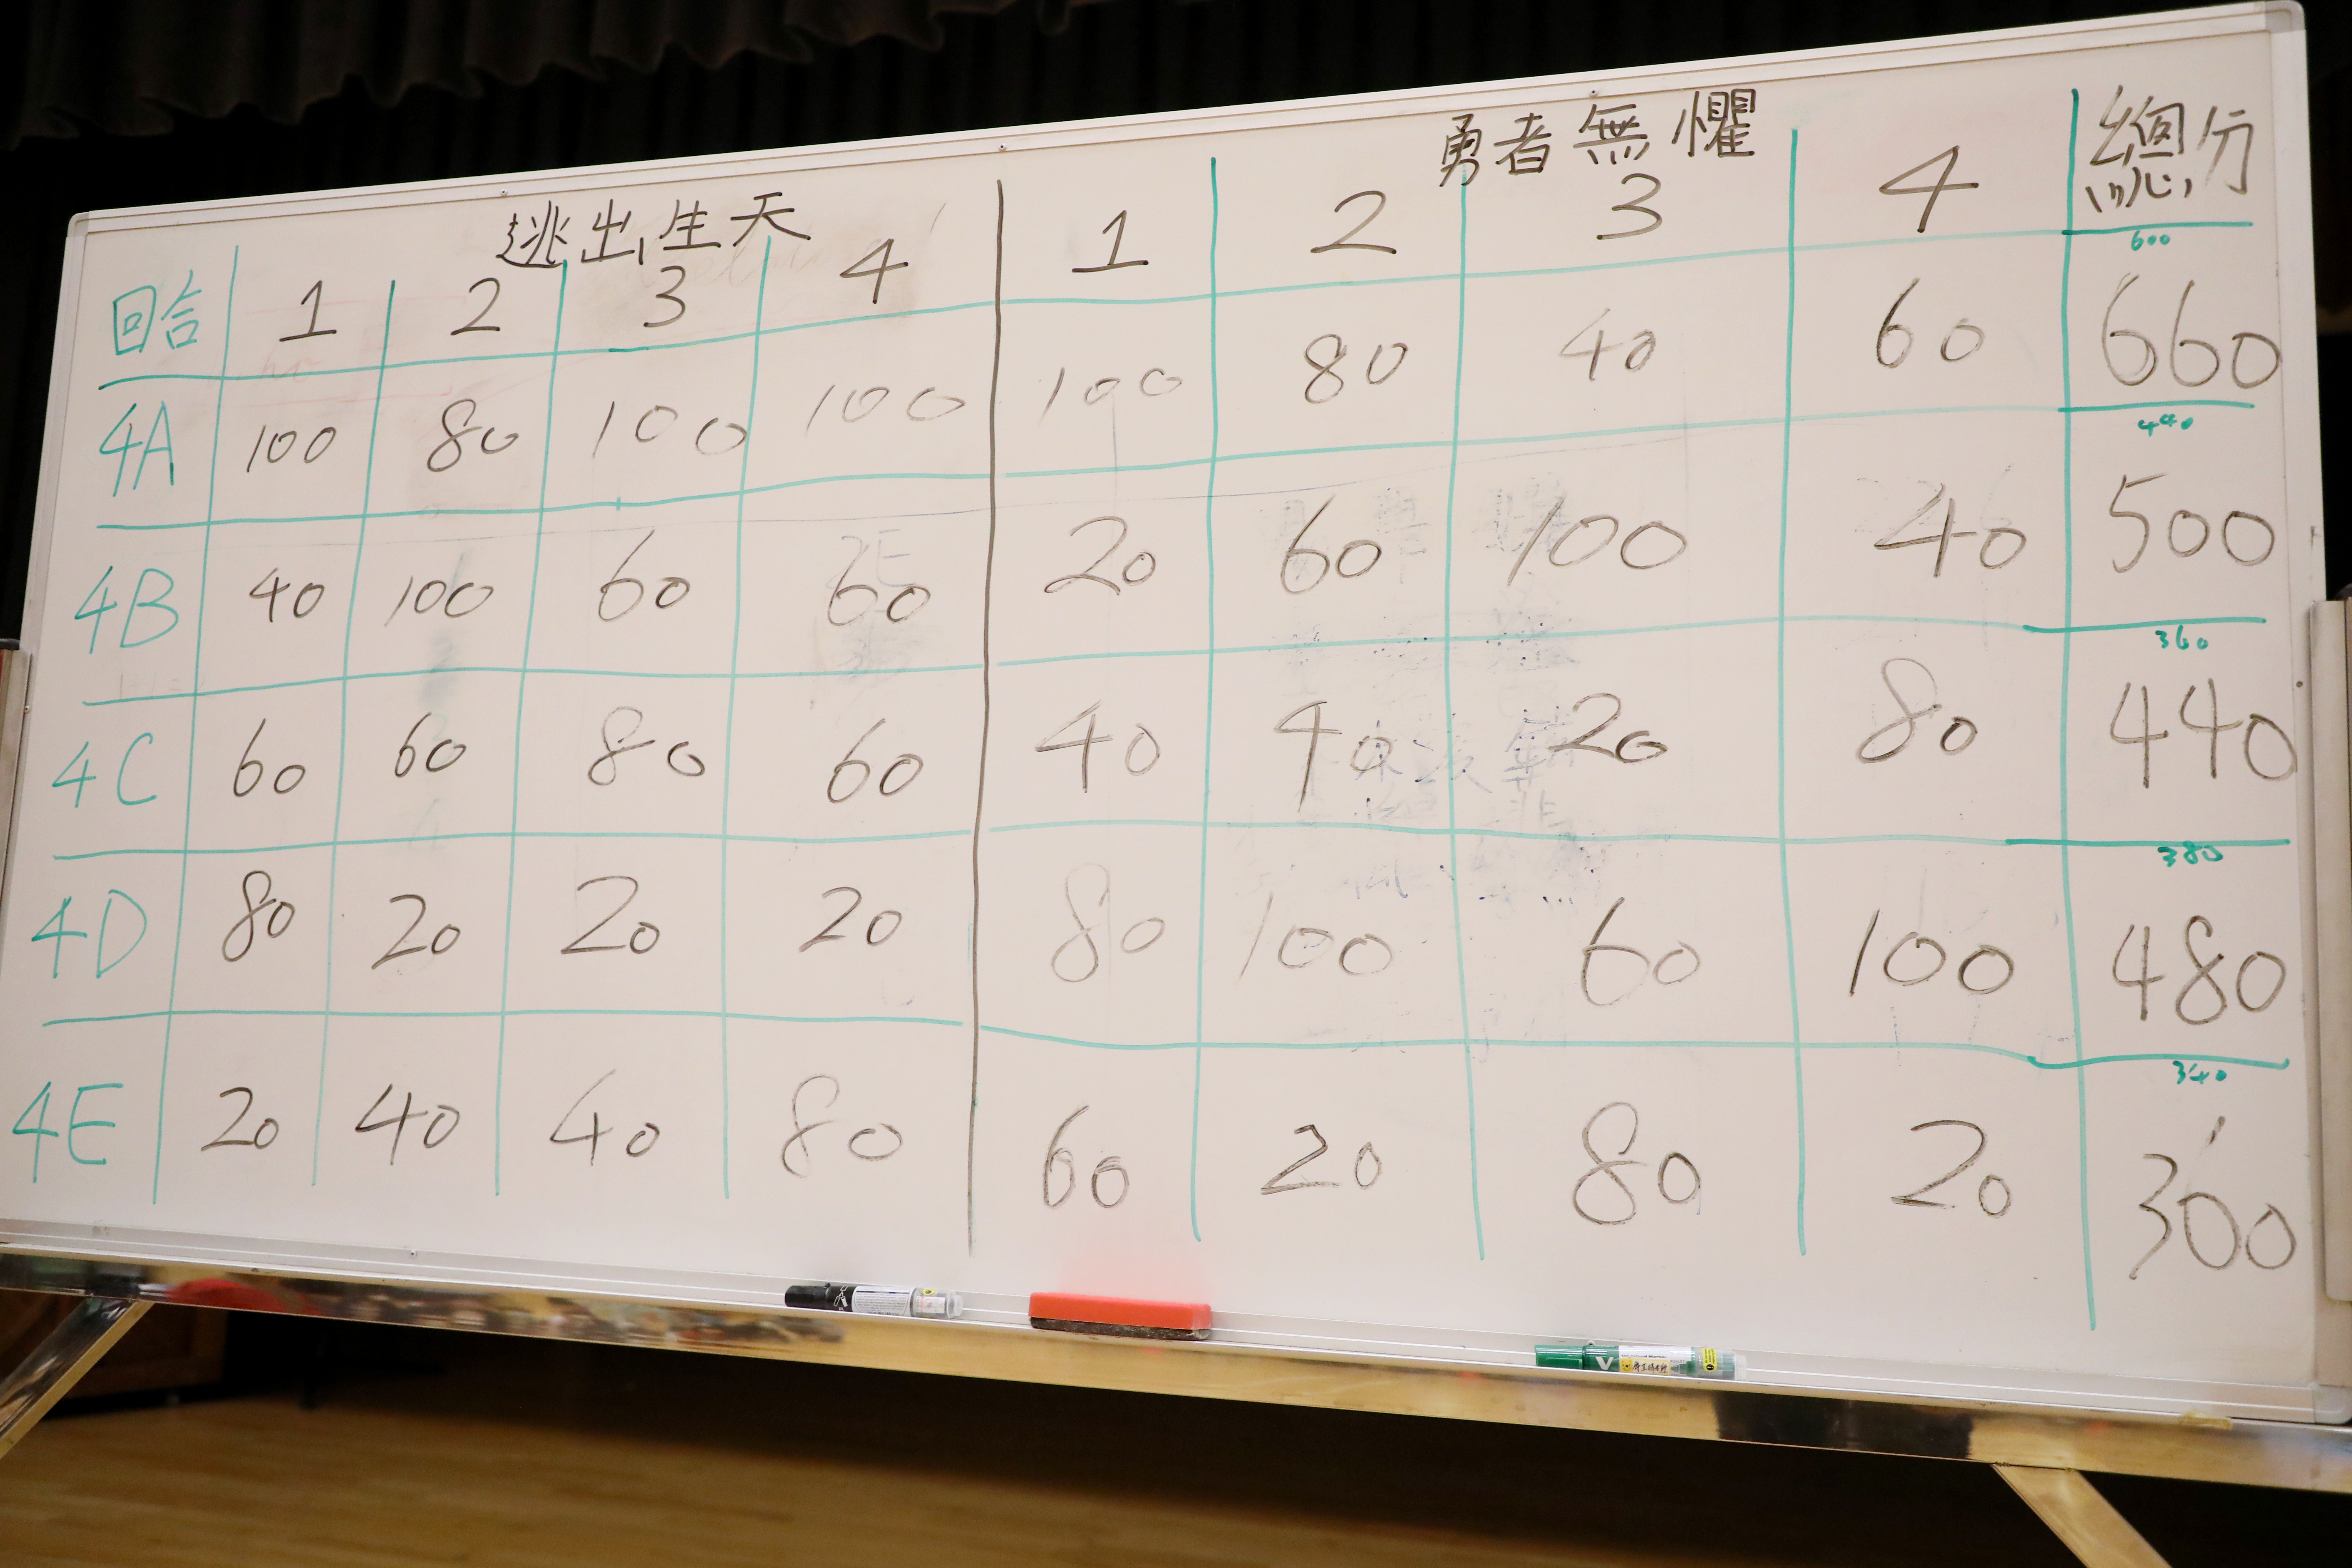 逃出生天 勇者無懼 總分
回合 1 2 3 4 1 2 3 4
600
4A 100 80 100 100 100 80 40 60 660
440
4B 40 100 60 60 20 60 100 40 500
360
4C 60 60 80 60 40 40 20 80 440
380
4D 80 20 20 20 80 100 60 100 480
340
4E 20 40 40 80 60 20 80 20 300
V